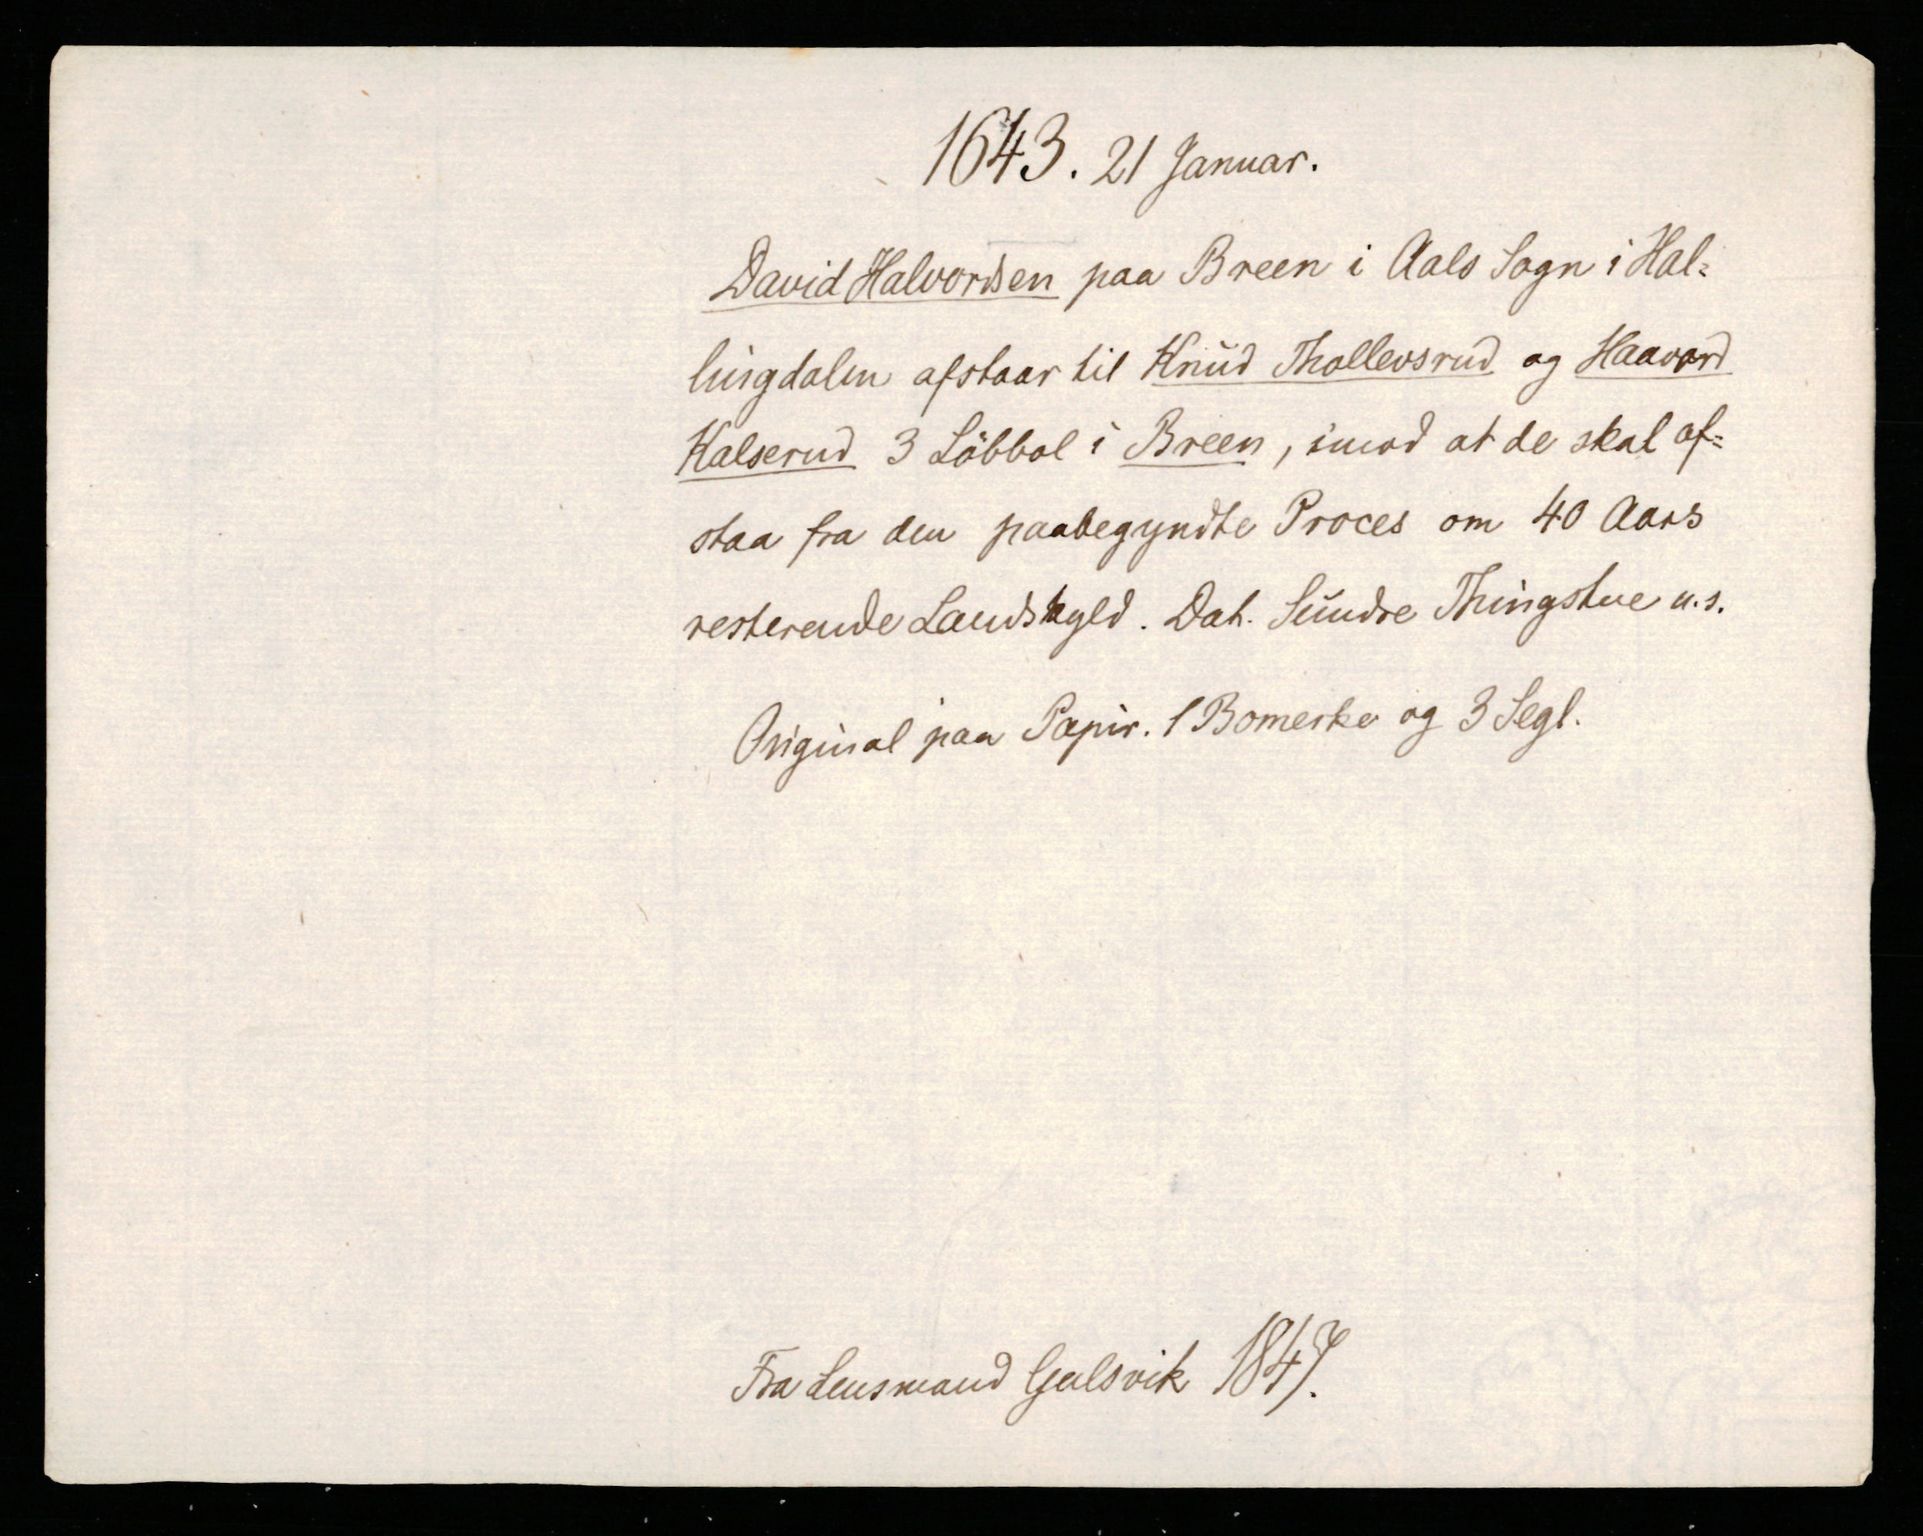 1643. 21 Januar.
David Halvordsen paa Breen i Aals Sogn i Hal-
lingdalen afstaar til Knud Thollevsrud og Haavard
Halserud 3 Löbbol i Breen, imod at de skal af-
staa fra den paabegyndte Proces om 40 Aars
resterende Landskyld. Dat. Sundre Thingstue u.s.
Original paa Papir. 1 Bomerke og 3 Segl.
Fra Lensmand Gulsvik 1847.